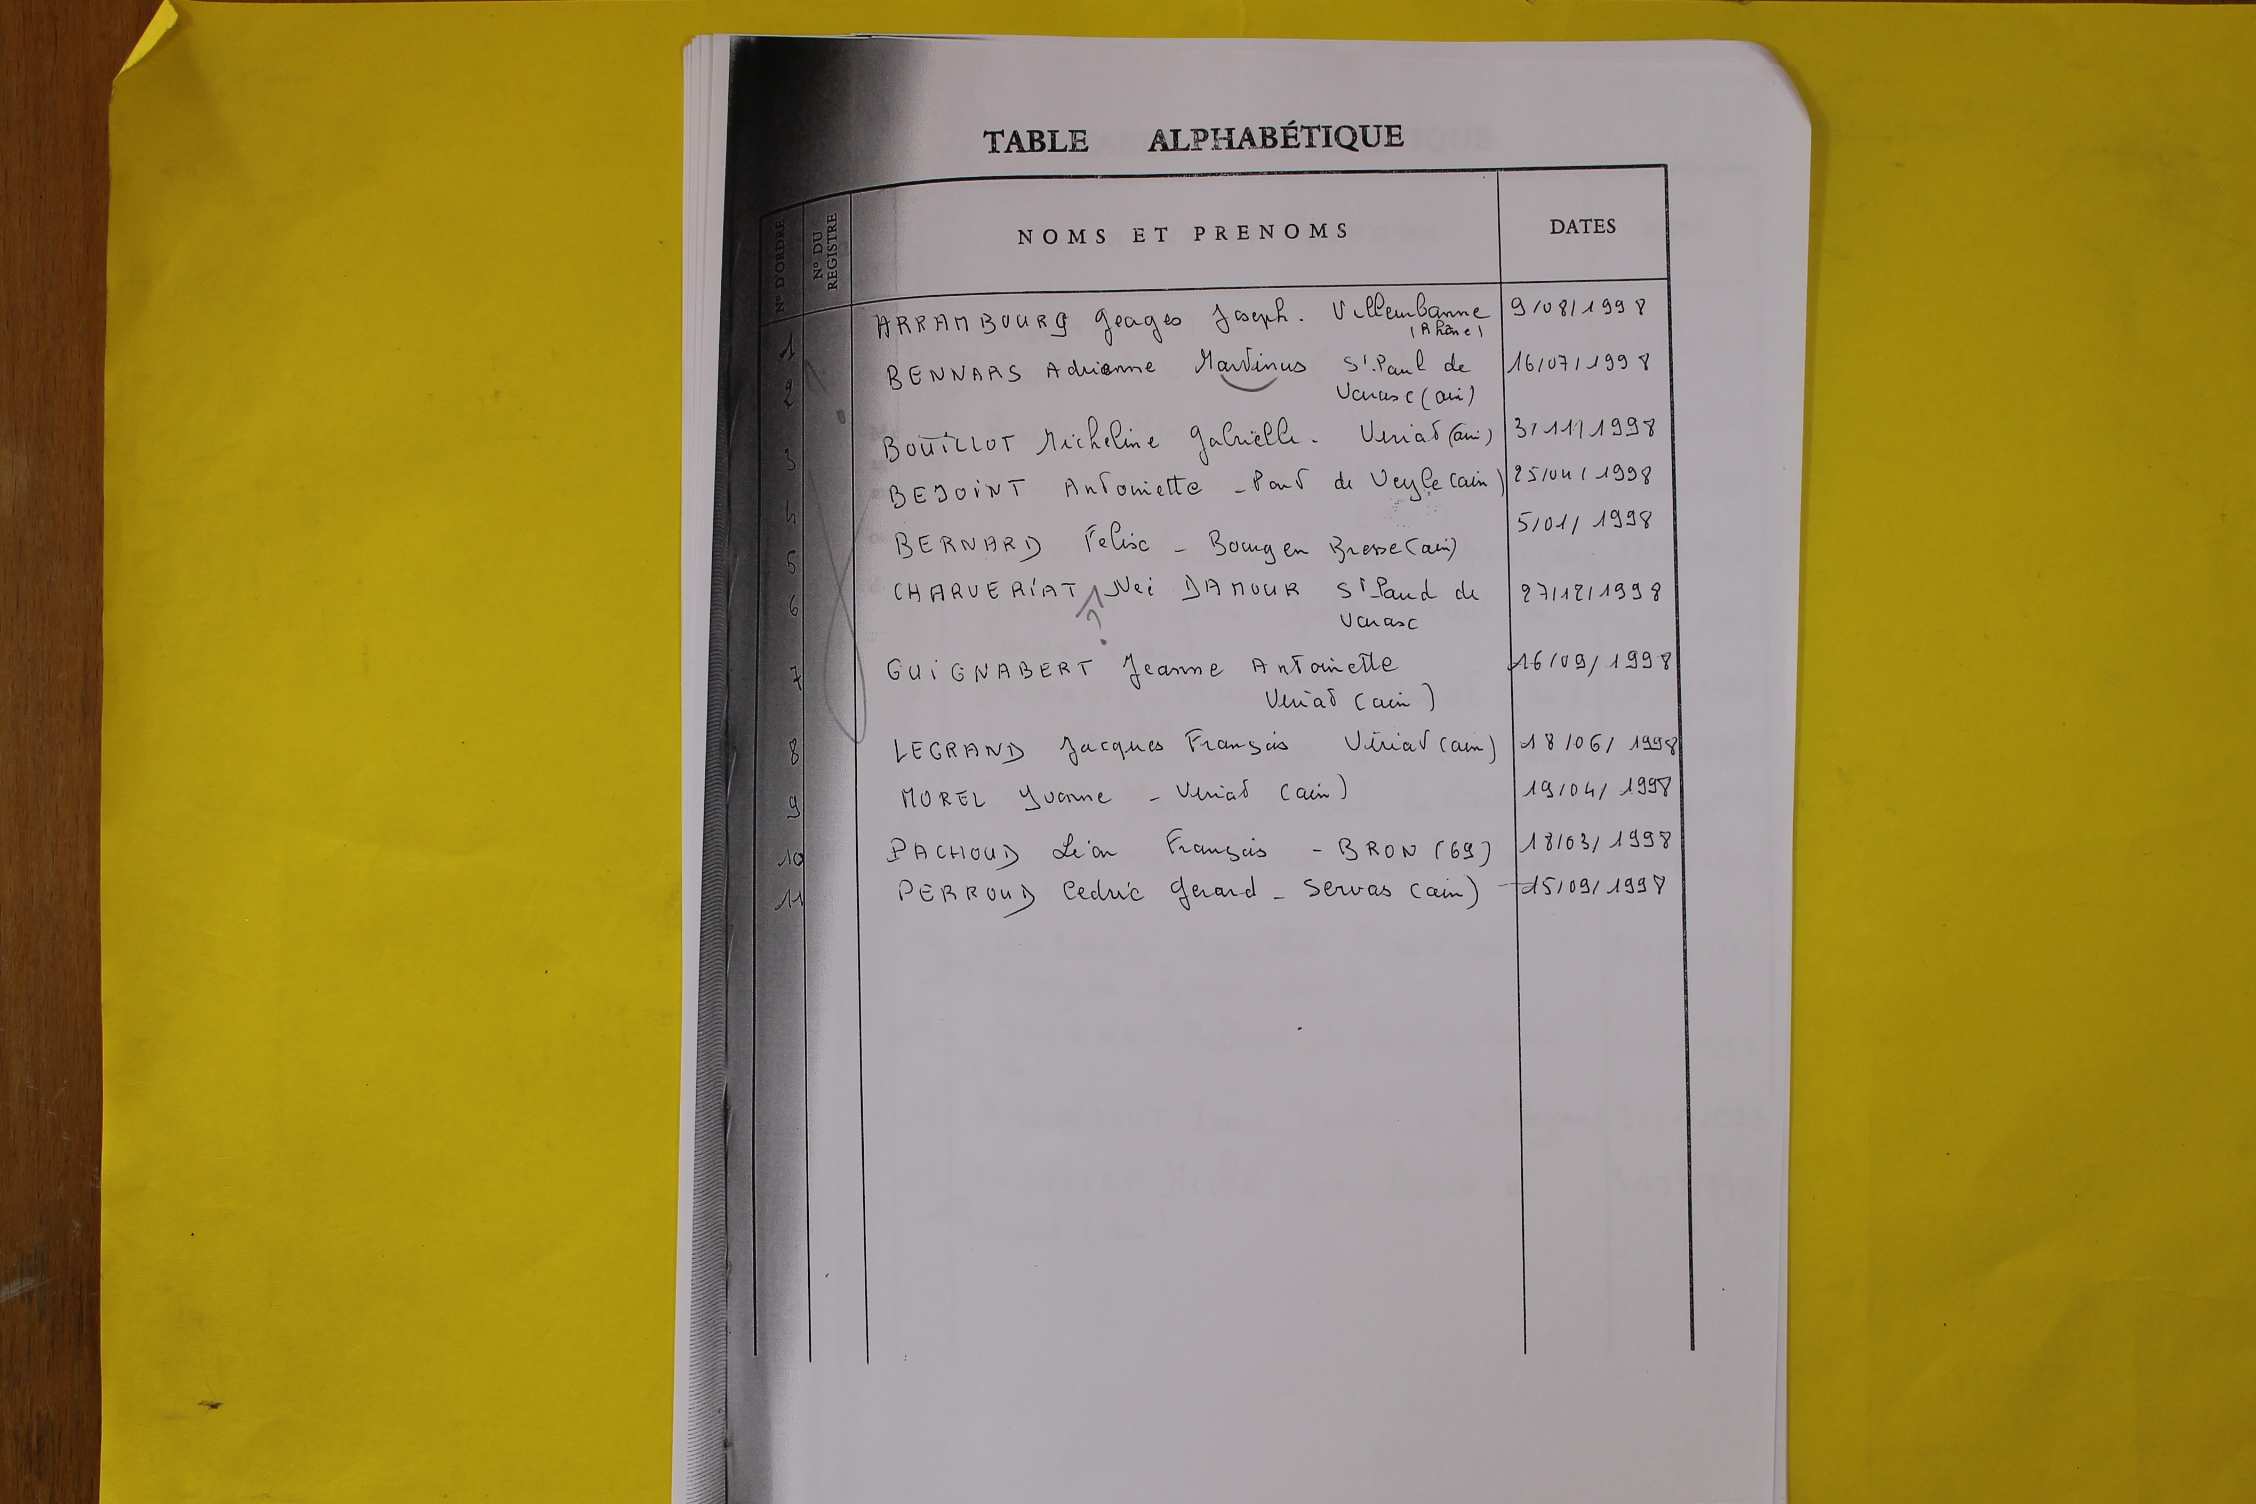 TABLE ALPHABÉTIQUE
N° D'ORDRE
N° DU REGISTRE
NOMS ET PRENOMS
DATES
1 ARRAMBOURG Georges Joseph. Villeurbanne 9/08/1998
(Rhône)
2 BENNARS Adrienne Martinus St.Paul de 16/07/1998
Varax (ain)
3 BOUILLOT Micheline Gabrielle. Viriat (ain) 3/11/1998
4 BEJOINT Antoinette - Pont de Veyle (ain) 25/04/1998
5 BERNARD Felix - Bourg en Bresse (ain) 5/01/1998
6 CHARVERIAT Neé DAMOUR St Paul de 27/12/1998
?
Varax
7 GUIGNABERT Jeanne Antoinette 16/09/1998
Viriat (ain)
8 LEGRAND Jacques François Viriat (ain) 18/06/1998
9 MOREL Yvonne - Viriat (ain) 19/04/1998
10 PACHOUD Léon François - BRON (69) 18/03/1998
11 PERROUD Cedric Gerard - Servas (ain) 15/09/1998